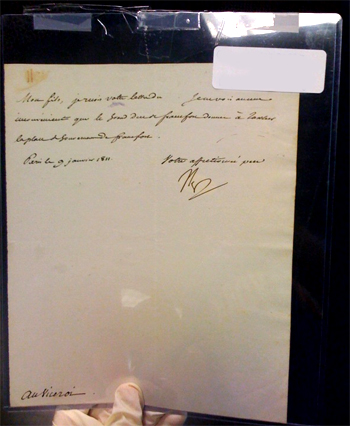 Mon fils, je reçois votre lettre du Je ne vois aucun
inconvénient que le Grand duc de francfort donne à
la place de Gouverneur de francfort.
Paris le 9 janvier 1811
Votre affectionné père
Np
au Viceroi